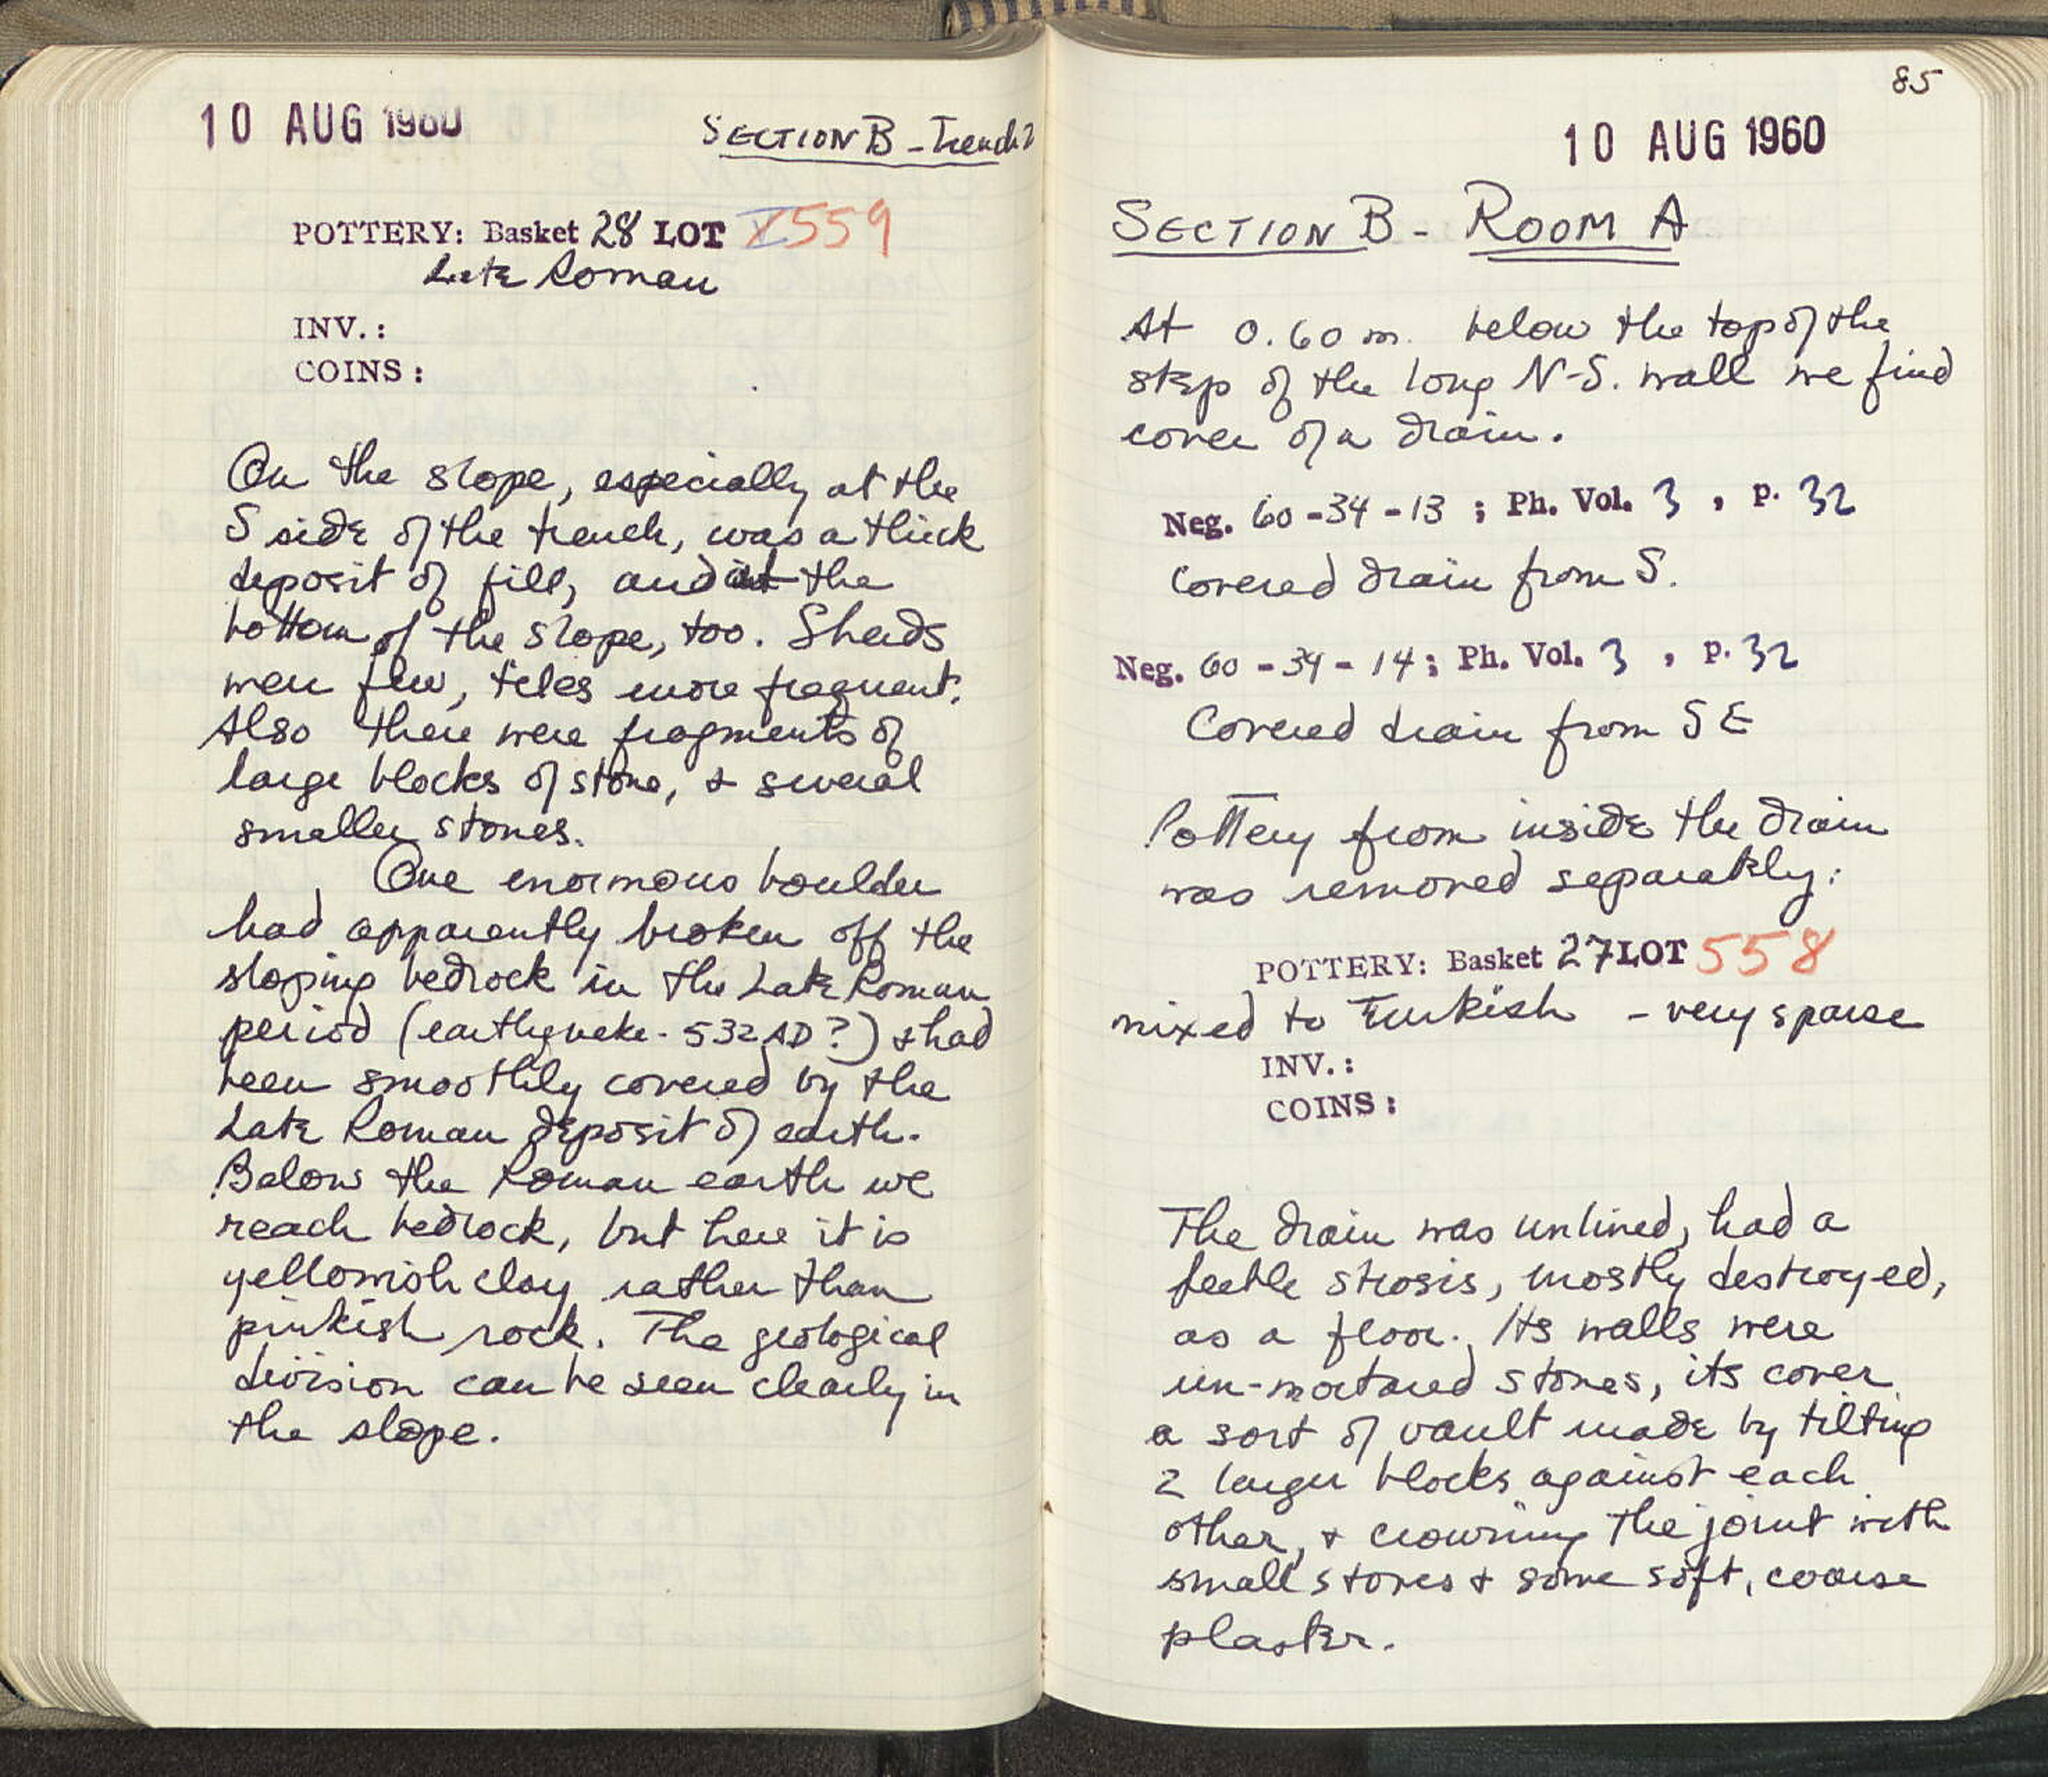 10 AUG 1960
SECTION B - Trench 2
POTTERY: Basket 28 LOT X559
Late Roman
INV.:
COINS:
On the slope, especially at the
S side of the trench, was a thick
deposit of fill, and at the
bottom of the slope, too. Sherds
were few, tiles more frequent.
Also there were fragments of
large blocks of stone, & several
smaller stones.
One enormous boulder
had apparently broken off the
sloping bedrock in the Late Roman
period (earthquake - 532 AD?) & had
been smoothly covered by the
Late Roman deposit of earth.
Below the Roman earth we
reach bedrock, but here it is
yellowish clay rather than
pinkish rock. The geological
division can be seen clearly in
the slope.
85
10 AUG 1960
SECTION B - ROOM A
At 0.60 m. below the top of the
step of the long N-S. wall we find
cover of a drain.
Neg. 60-34-13; Ph. Vol. 3, p. 32
Covered drain from S.
Neg. 60-34-14; Ph. Vol. 3, p. 32
Covered drain from SE
Pottery from inside the drain
was removed separately:
POTTERY: Basket 27 LOT 558
mixed to Turkish - very sparse
INV.:
COINS:
The drain was unlined, had a
feeble strosis, mostly destroyed,
as a floor. Its walls were
un-mortared stones, its cover
a sort of vault made by tilting
2 larger blocks against each
other, & crowning the joint with
small stones & some soft, coarse
plaster.